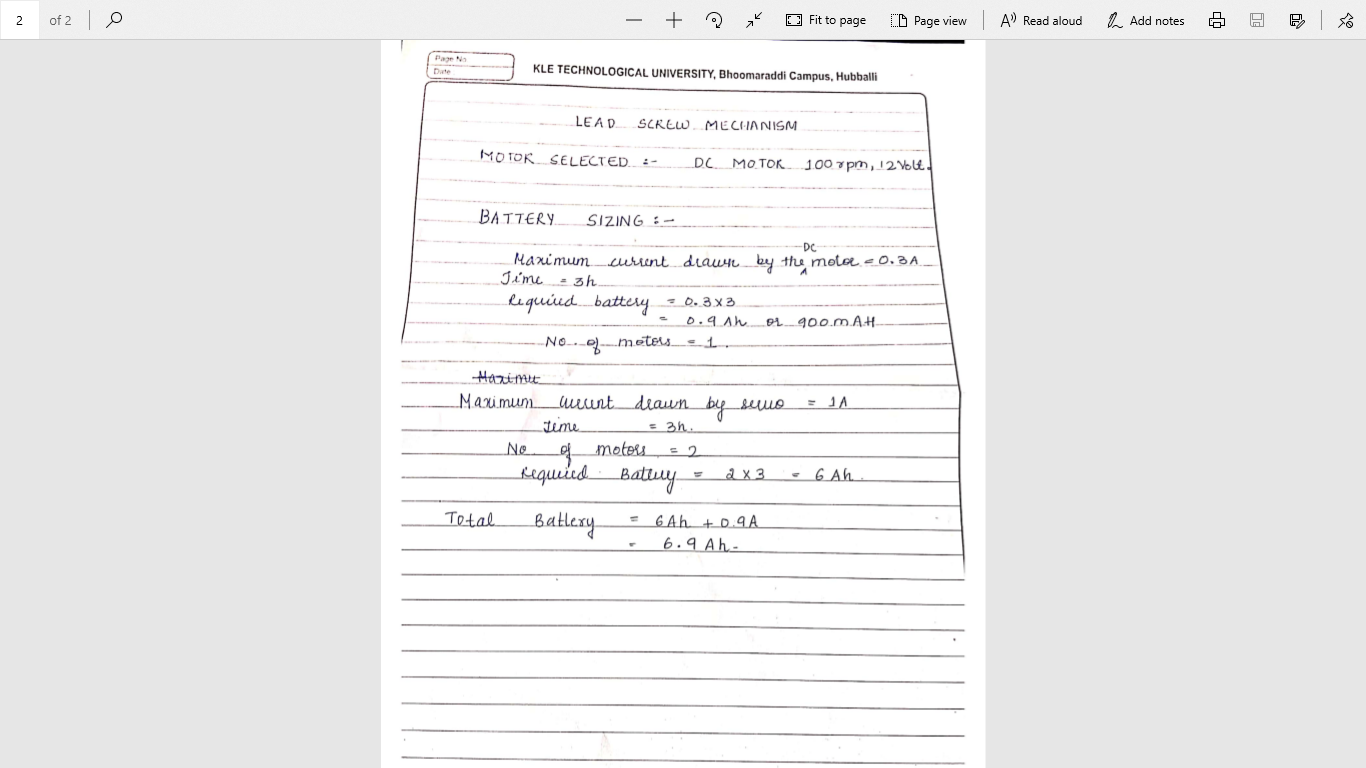 2 of 2 Fit to page Page view Read aloud Add notes
Page No
Date
KLE TECHNOLOGICAL UNIVERSITY, Bhoomaraddi Campus, Hubballi
LEAD SCREW MECHANISM
MOTOR SELECTED :- DC MOTOR 100 rpm, 12 Volt.
BATTERY SIZING :-
DC
Maximum current drawn by the motor = 0.3A
Time = 3h
Required battery = 0.3 x 3
= 0.9 Ah or 900 mAH
No. of motors = 1.
Maximu
Maximum current drawn by servo = 1A
Time = 3h.
No of motors = 2
Required Battery = 2 x 3 = 6 Ah.
Total Battery = 6Ah + 0.9A
= 6.9 Ah-